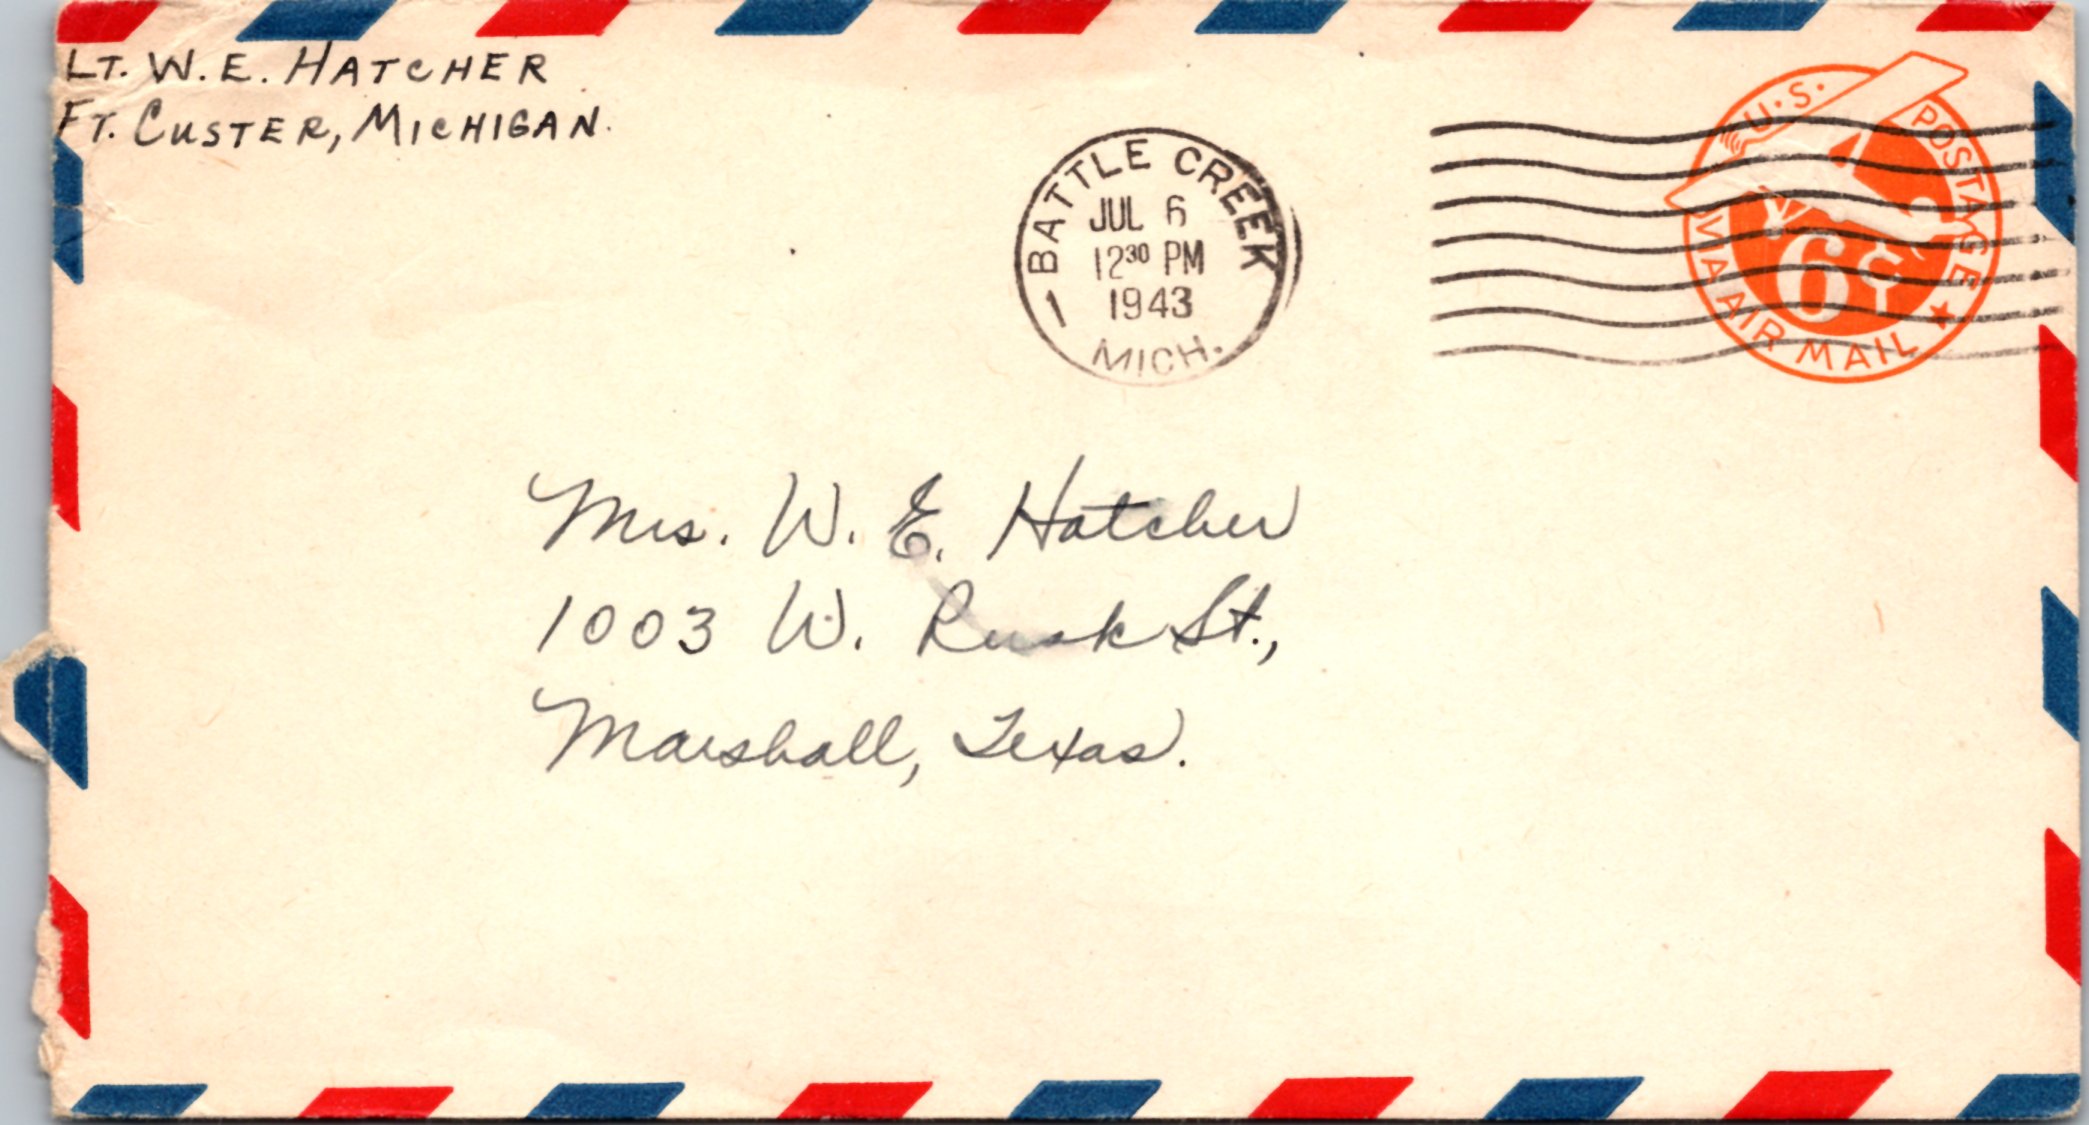 LT. W. E. HATCHER
FT. CUSTER, MICHIGAN.
BATTLE CREEK
JUL 6
12³⁰ PM
1943
1
MICH.
U.S. POSTAGE
6¢
VIA AIR MAIL
Mrs. W. E. Hatcher
1003 W. Rusk St.,
Marshall, Texas.